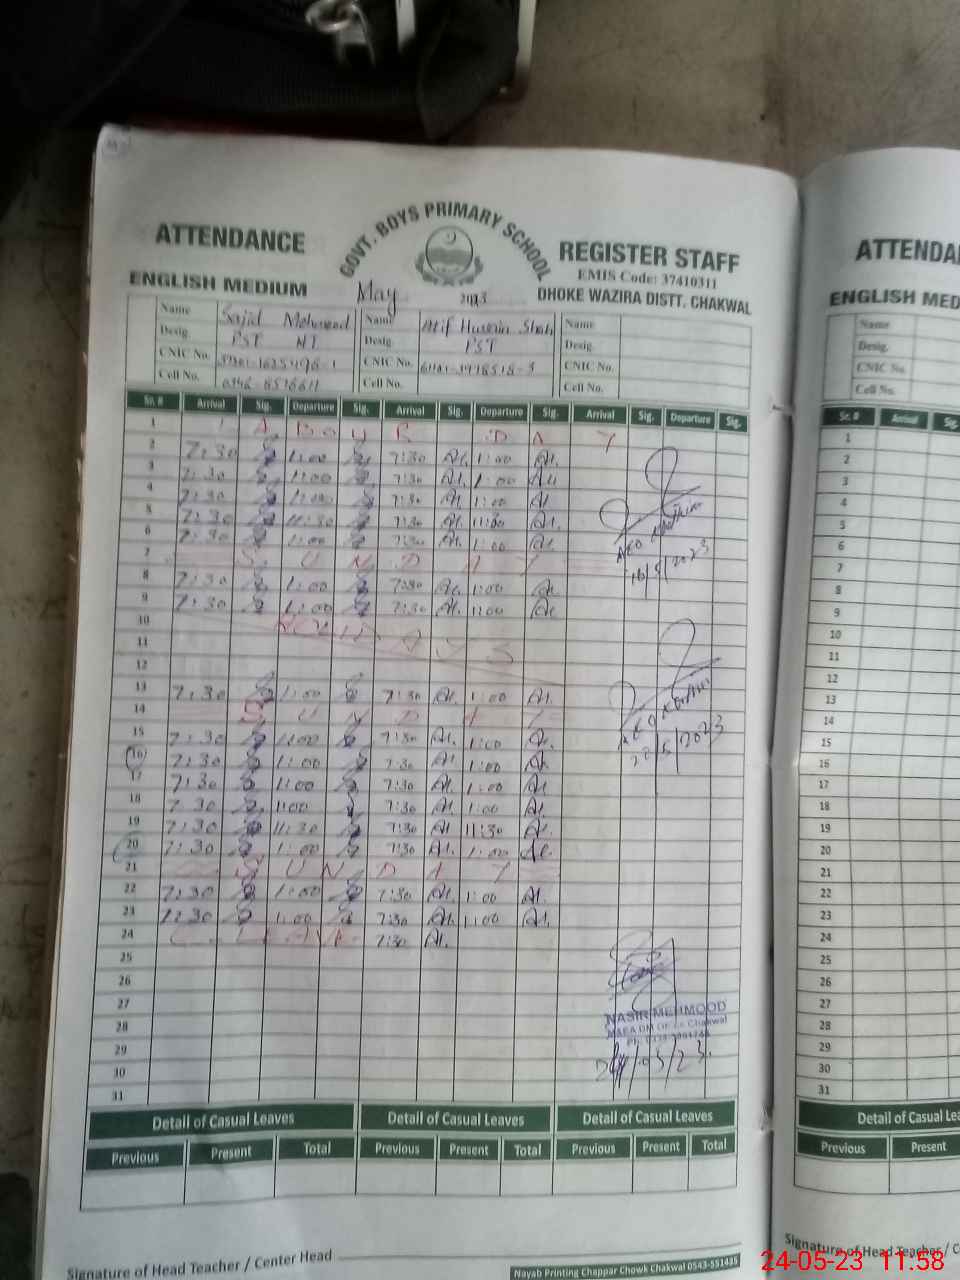 GOVT. BOYS PRIMARY SCHOOL
ATTENDANCE REGISTER STAFF
EMIS Code: 37410311
ENGLISH MEDIUM May 2023 DHOKE WAZIRA DISTT. CHAKWAL
Name Sajid Mehmood Name Atif Husain Shah Name
Desig. PST Desig. PST Desig.
CNIC No. CNIC No. CNIC No.
Cell No. Cell No. Cell No.
Sr. # Arrival Sig. Departure Sig. Arrival Sig. Departure Sig. Arrival Sig. Departure Sig.
1 L A B O U R D A Y
2 7:30 1:00 7:30 At. 1:00 At.
3 7:30 1:00 7:30 At. 1:00 At
4 7:30 1:00 7:30 At 1:00 At
5 7:30 11:30 7:30 At. At.
6 7:30 1:00 7:30 At. 1:00 At.
7 S U N D A Y
8 7:30 1:00 7:30 At. 1:00 At.
9 7:30 1:00 7:30 At. 1:00 At
16/5/2023
10 HOLIDAYS
11
12
13 7:30 1:00 7:30 At. 1:00 At.
14 S U N D A Y
15 7:30 1:00 7:30 At. 1:00 At.
20/5/2023
16 7:30 1:00 7:30 At 1:00 At
17 7:30 1:00 7:30 At. 1:00 At.
18 7:30 1:00 7:30 At. 1:00 At.
19 7:30 11:30 7:30 At 11:30 At.
20 7:30 1:00 7:30 At. 1:00 At.
21 S U N D A Y
22 7:30 1:00 7:30 At. 1:00 At.
23 7:30 1:00 7:30 At. 1:00 At.
24 C. LEAVE 7:30 At.
25
26
27
NASIR MEHMOOD
28
MAEA Chakwal
29
24/05/23.
30
31
Detail of Casual Leaves Detail of Casual Leaves Detail of Casual Leaves
Previous Present Total Previous Present Total Previous Present Total
Signature of Head Teacher / Center Head
Nayab Printing Chappar Chowk Chakwal 0543-551435
ATTENDA
ENGLISH MED
Name
Desig.
CNIC No.
Cell No.
Sr. # Arrival Sig.
1
2
3
4
5
6
7
8
9
10
11
12
13
14
15
16
17
18
19
20
21
22
23
24
25
26
27
28
29
30
31
Detail of Casual Le
Previous Present
Signature of Head Teacher / C
24-05-23 11:58